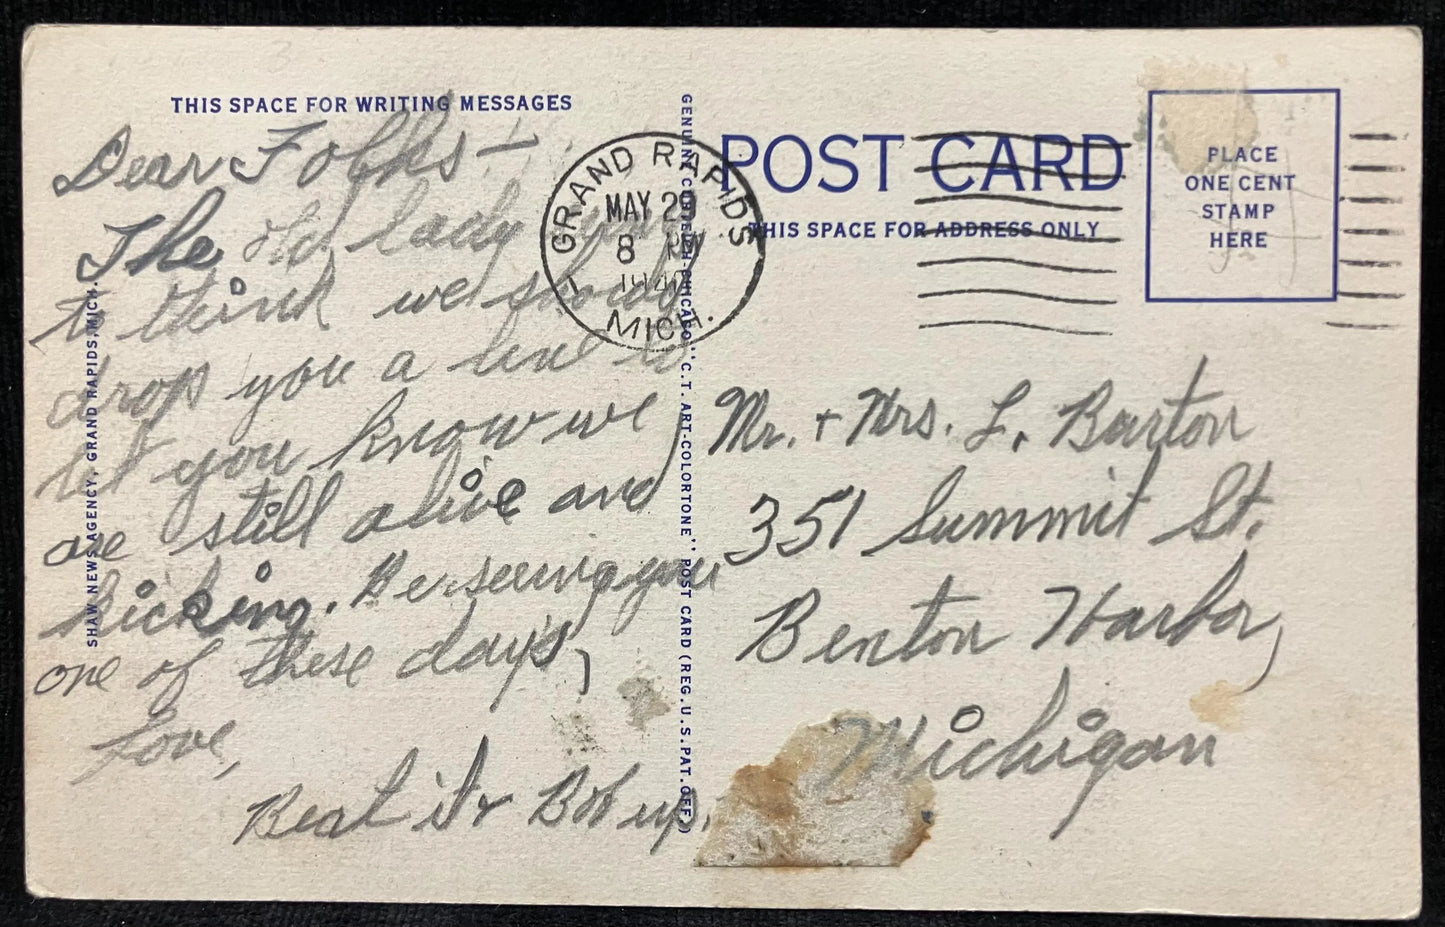 THIS SPACE FOR WRITING MESSAGES
Dear Folks —
The old lady
to think we should
drop you a line to
let you know we
are still alive and
kicking. Be seeing you
one of these days,
Love,
Beat it & Bob up.
SHAW NEWS AGENCY, GRAND RAPIDS, MICH.
GENUINE CURTEICH-CHICAGO "C.T. ART-COLORTONE" POST CARD (REG. U.S. PAT. OFF.)
GRAND RAPIDS
MAY 29
8 PM
MICH.
POST CARD
THIS SPACE FOR ADDRESS ONLY
PLACE
ONE CENT
STAMP
HERE
Mr. + Mrs. L. Barton
351 Summit St.
Benton Harbor,
Michigan